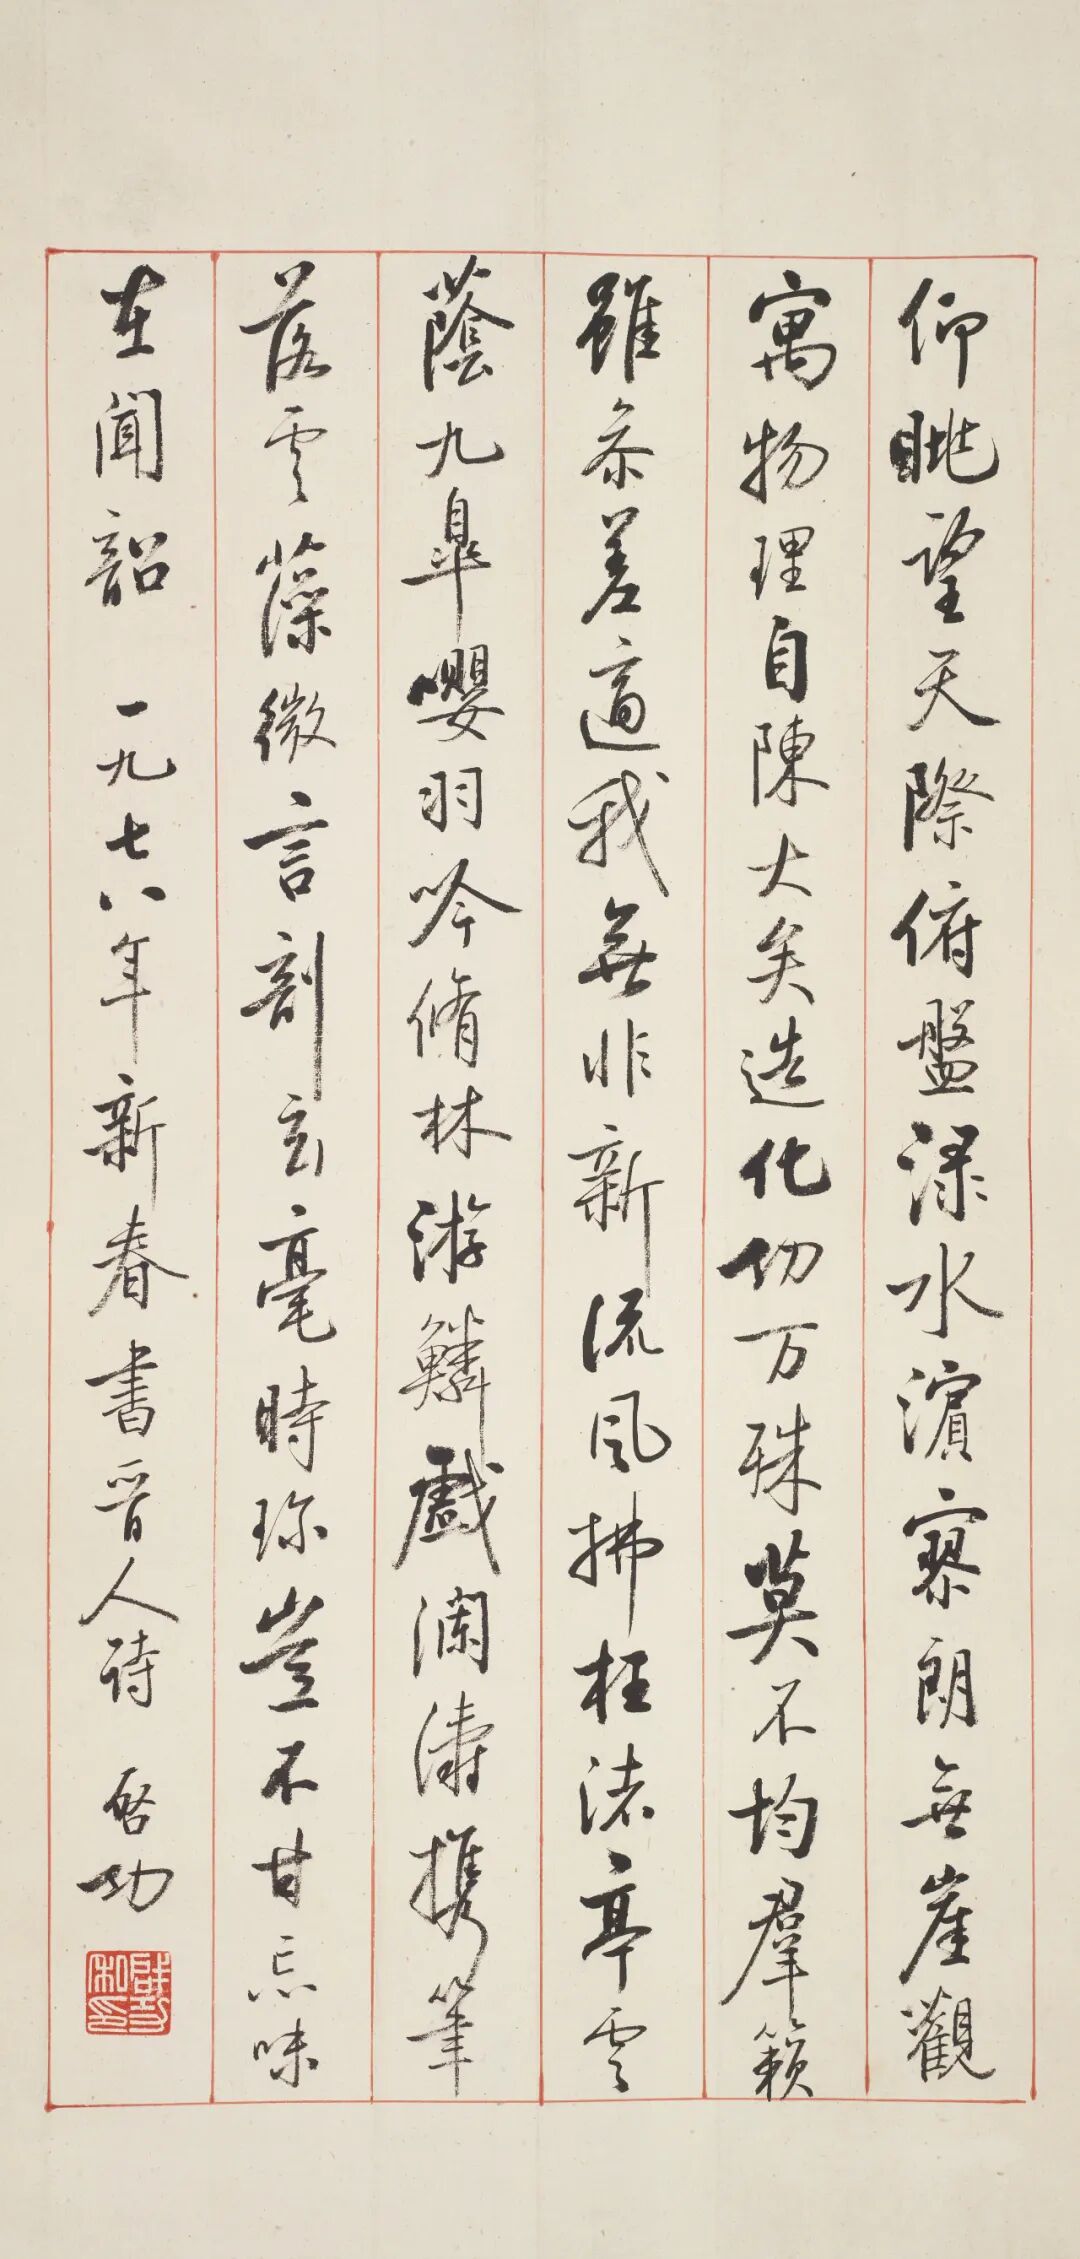 仰眺望天際俯盤淥水濱寥朗無崖觀
寓物理自陳大矣造化功万殊莫不均羣籟
雖參差適我無非新流風拂枉渚亭雲
蔭九皐嚶羽吟脩林游鱗戲瀾濤携筆
落雲藻微言剖玄毫時珍豈不甘忘味
在聞韶 一九七八年新春書晉人詩 啓功
啟功私印